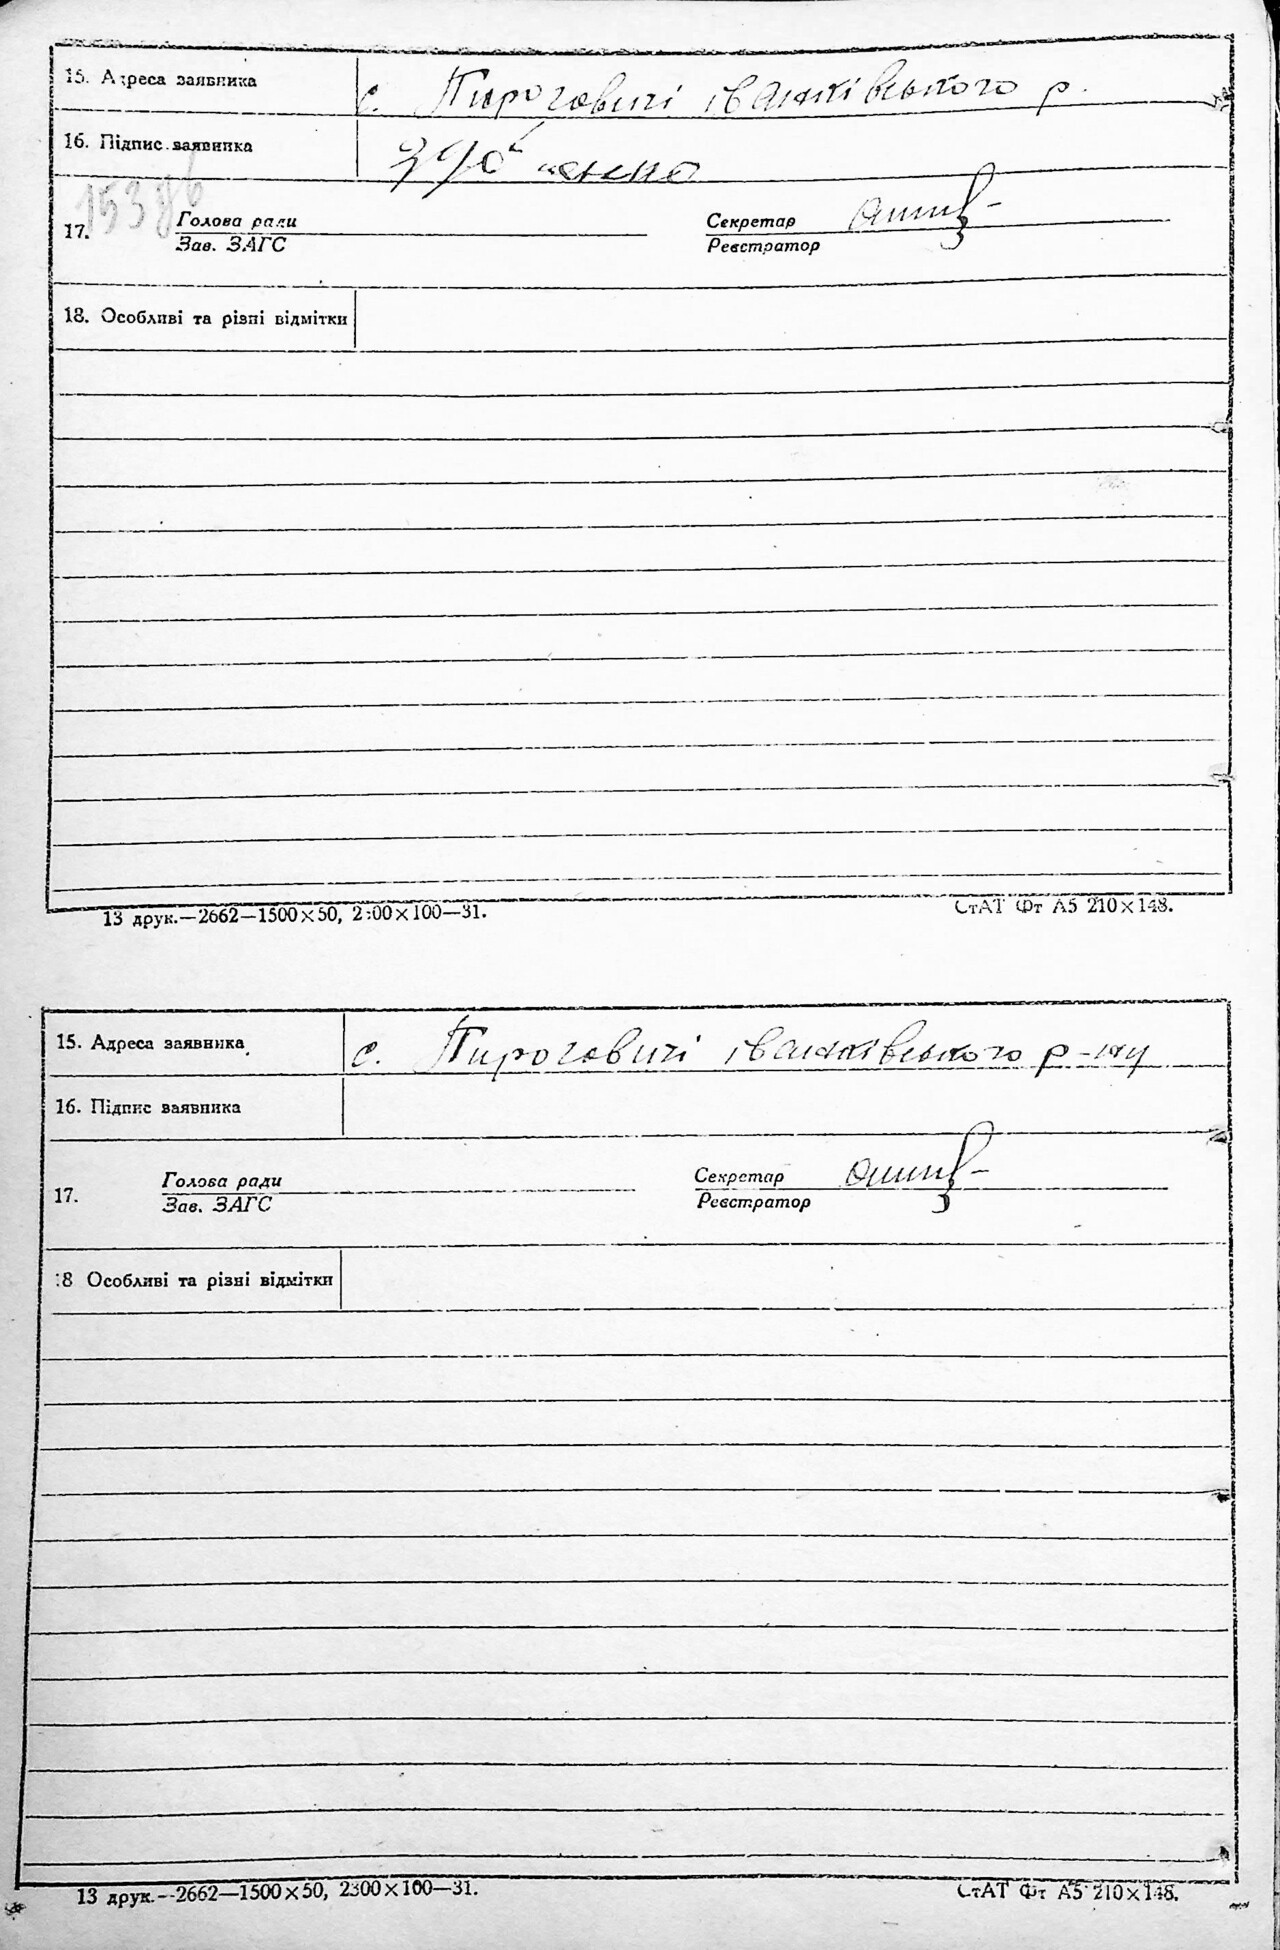 15. Адреса заявника
с. Пироговичі іванківського р.
16. Підпис заявника
17.
Голова ради
Зав. ЗАГС
Секретар
Реєстратор
18. Особливі та різні відмітки
13 друк.—2662—1500×50, 2300×100—31.
СтАТ Фт А5 210×148.
15. Адреса заявника
с. Пироговичі іванківського р-ну
16. Підпис заявника
17.
Голова ради
Зав. ЗАГС
Секретар
Реєстратор
18 Особливі та різні відмітки
13 друк.—2662—1500×50, 2300×100—31.
СтАТ Фт А5 210×148.